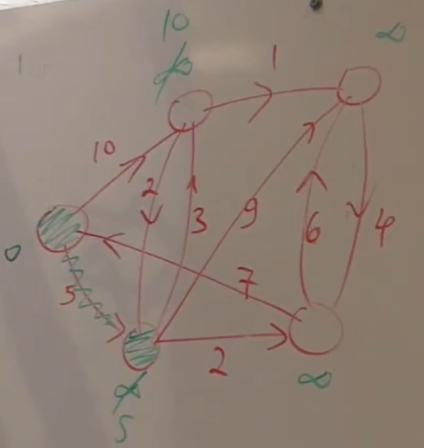 10
∞
∞
1
10
2
3
9
6
4
0
5
7
2
∞
∞
5